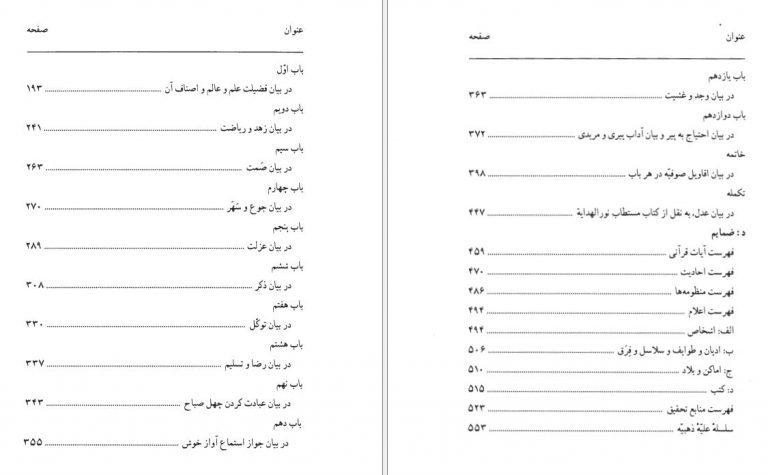 عنوان صفحه
باب اوّل
در بیان فضیلت علم و عالم و اصناف آن ........ ۱۹۳
باب دویم
در بیان زهد و ریاضت ........ ۲۴۱
باب سیم
در بیان صُمت ........ ۲۶۳
باب چهارم
در بیان جوع و سَهَر ........ ۲۷۰
باب پنجم
در بیان عزلت ........ ۲۸۹
باب ششم
در بیان ذکر ........ ۳۰۸
باب هفتم
در بیان توکّل ........ ۳۳۰
باب هشتم
در بیان رضا و تسلیم ........ ۳۳۷
باب نهم
در بیان عبادت کردن چهل صباح ........ ۳۴۳
باب دهم
در بیان جواز استماع آواز خوش ........ ۳۵۵
عنوان صفحه
باب یازدهم
در بیان وجد و غشیت ........ ۳۶۳
باب دوازدهم
در بیان احتیاج به پیر و بیان آداب پیری و مریدی ........ ۳۷۲
خاتمه
در بیان اقاویل صوفیّه در هر باب ........ ۳۹۸
تکمله
در بیان عدل، به نقل از کتاب مستطاب نورالهدایة ........ ۴۴۷
د: ضمایم
فهرست آیات قرآنی ........ ۴۵۹
فهرست احادیث ........ ۴۷۰
فهرست منظومه‌ها ........ ۴۸۶
فهرست اعلام ........ ۴۹۴
الف: اشخاص ........ ۴۹۴
ب: ادیان و طوایف و سلاسل و فِرَق ........ ۵۰۶
ج: اماکن و بلاد ........ ۵۱۰
د: کتب ........ ۵۱۵
فهرست منابع تحقیق ........ ۵۲۳
سلسلهٔ علیّهٔ ذهبیّه ........ ۵۵۳